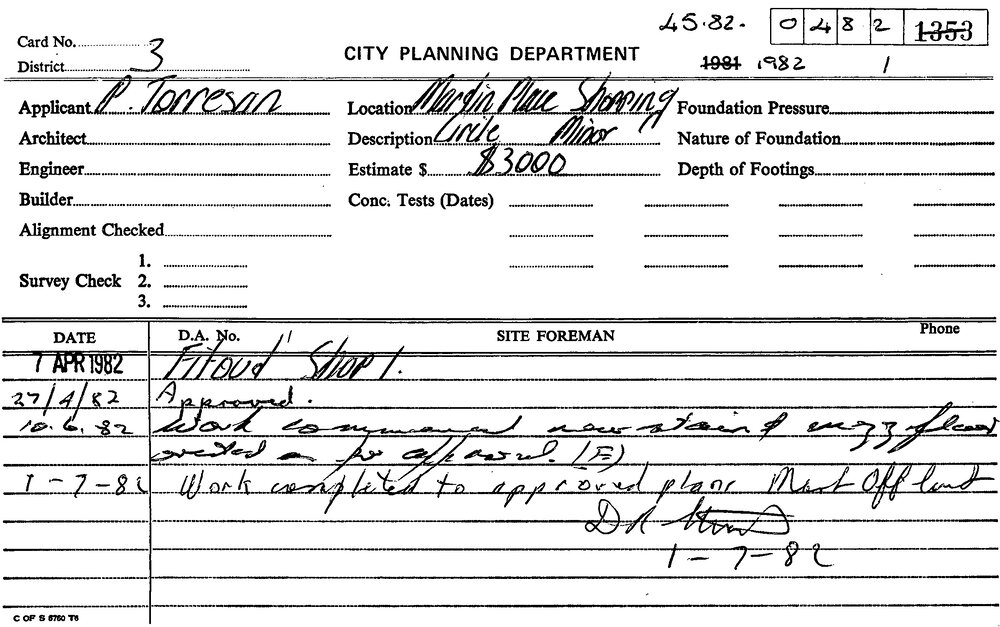 45.82. 0 4 8 2 1353
Card No.
District 3
CITY PLANNING DEPARTMENT
1981 1982 1
Applicant P. Torresan Location Martin Place Shopping Foundation Pressure
Architect Description Circle Minor Nature of Foundation
Engineer Estimate $ $3000 Depth of Footings
Builder Conc. Tests (Dates)
Alignment Checked
1.
Survey Check 2.
3.
DATE D.A. No. SITE FOREMAN Phone
7 APR 1982 Fitout Shop 1.
27/4/82 Approved.
10.6.82 Work commenced new stair & mezz floor
erected as per approval. (E)
1-7-82 Work completed to approved plans
D R
1-7-82
C OF S 5760 T6